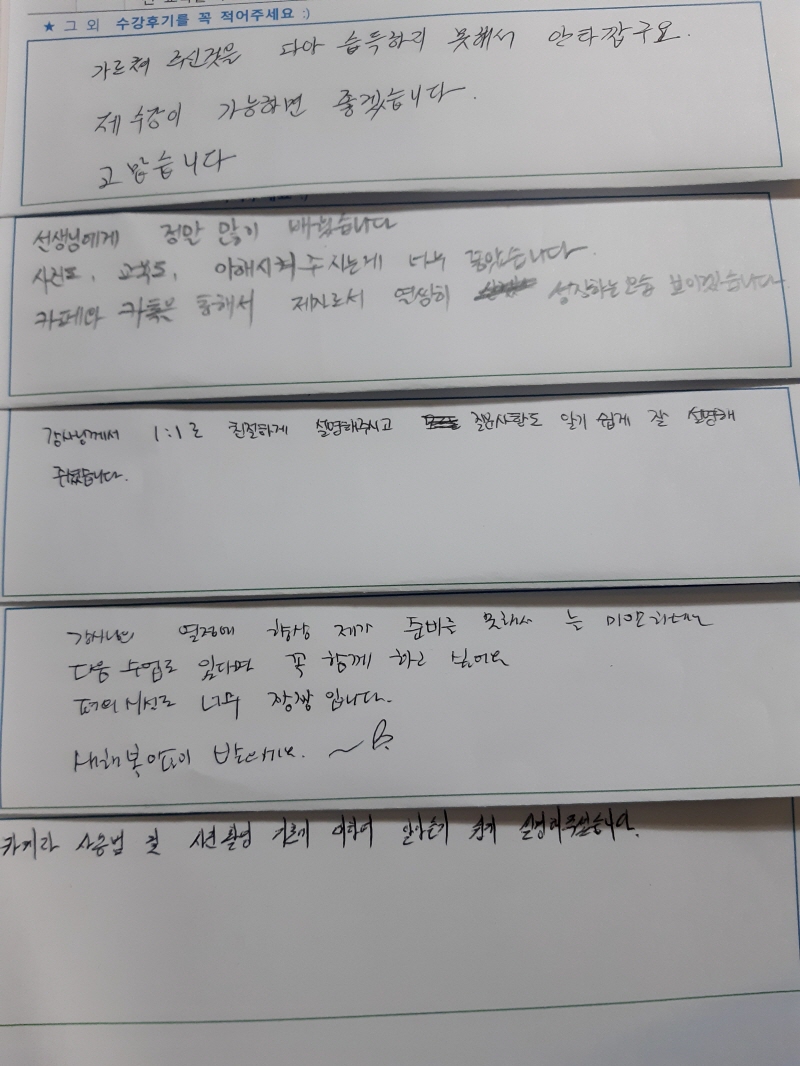 ★ 그 외 수강후기를 꼭 적어주세요 :)
가르쳐 주신것을 다아 습득하지 못해서 안타깝구요.
제 수강이 가능하면 좋겠습니다.
고맙습니다
선생님에게 정말 많이 배웠습니다
사진도, 교육도, 이해시켜주시는게 너무 좋았습니다.
카페와 카톡을 통해서 제자로서 열심히 성장하는모습 보이겠습니다
강사님께서 1:1로 친절하게 설명해주시고 질문사항도 알기 쉽게 잘 설명해
주셨습니다.
강사님의 열정에 항상 제가 준비를 못해서 는 미안하다만
다음 수업도 있다면 꼭 함께 하고 싶어요
너무 짱짱 입니다.
새해 복 많이 받으세요. ~
카메라 사용법 및 사진촬영 기초에 대하여 알기 쉽게 설명해주셨습니다.